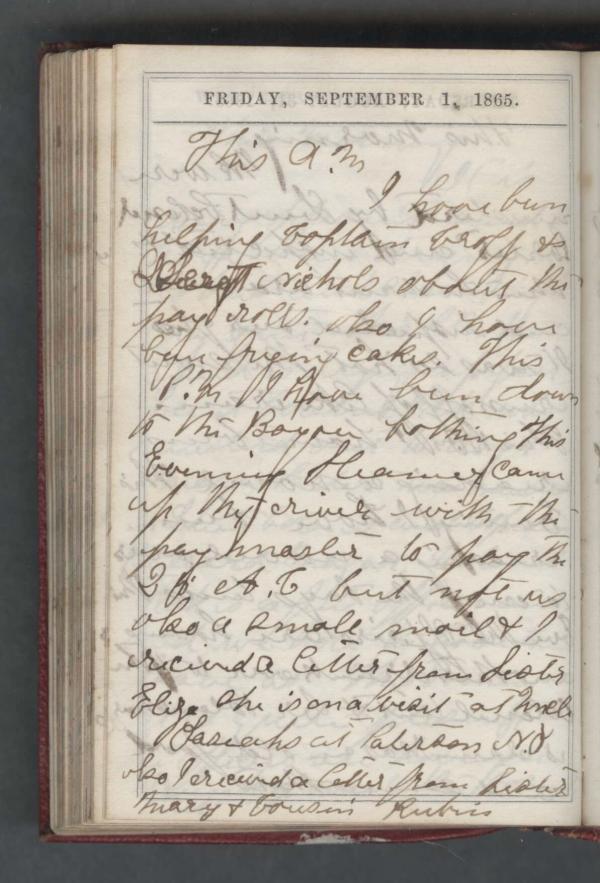 FRIDAY, SEPTEMBER 1, 1865.
This A.M
I have bun
helping Captain Groff &
Sergt Nichols about the
pay rolls. also I have
bun frying cakes. This
P.M I have bun down
to the Bayou bathing This
Evening Steamer came
up the river with the
pay master to pay the
but not us
also a small mail & I
recieved a letter from Sister
Eliza she is on a visit at Uncle
at Paterson N.J
also I recieved a letter from Sister
Mary & Cousin Rubin